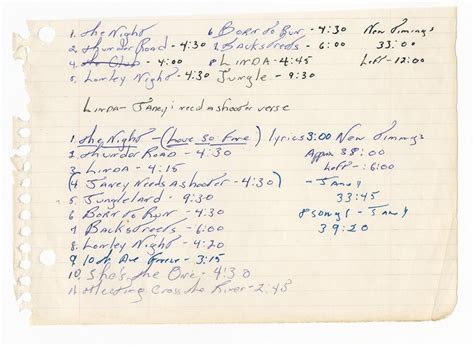 1. The Night 6 Born To Run - 4:30 New Timings
2 Thunder Road - 4:30 7 Backstreets - 6:00 33:00
4. The Club - 4:00 8 Linda - 4:45 Left - 12:00
5. Lonley Night - 4:30 Jungle - 9:30
Linda - Janey's need a shooter verse
1. The Night - (Love So Fine) lyrics 3:00 New Timings
2 Thunder Road - 4:30 Appx. 38:00
3 Linda - 4:15 Left - :6:00
(4 Janey Needs A shooter - 4:30) - Janey
5 Jungleland - 9:30 33:45
6 Born To Run - 4:30 8 songs - Janey
7 Backstreets - 6:00 39:20
8 Lonley Night - 4:20
9 10th Ave Freeze - 3:15
10. She's The One - 4:30
11. Meeting Cross The River - 2:45